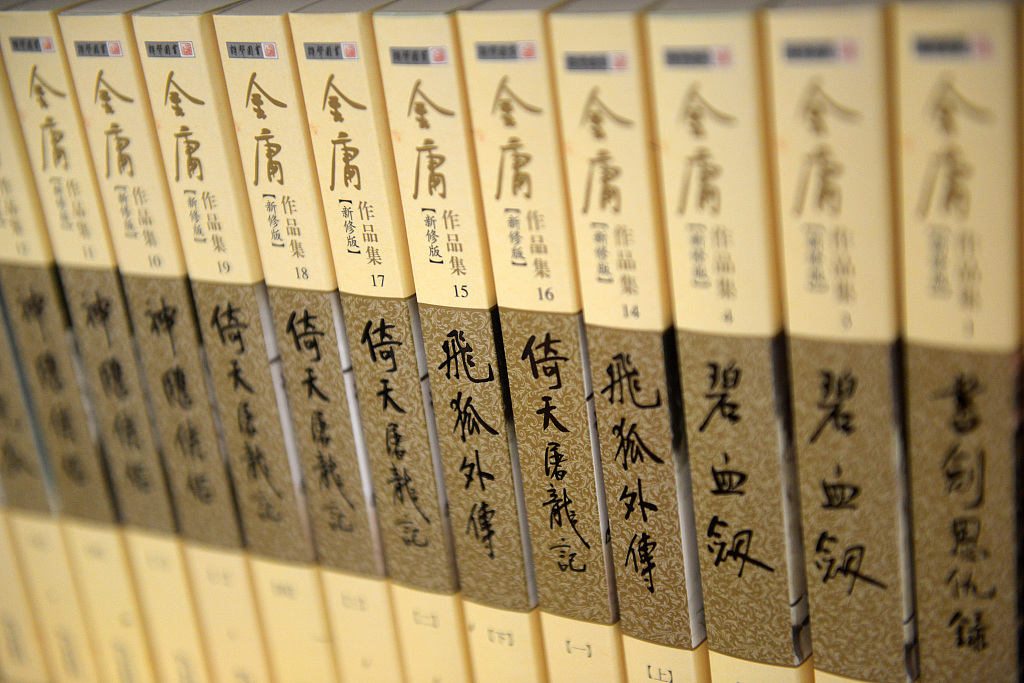 金庸
作品集
【新修版】
11
神鵰俠侶
金庸
作品集
【新修版】
10
神鵰俠侶
金庸
作品集
【新修版】
19
倚天屠龍記
金庸
作品集
【新修版】
18
倚天屠龍記
【三】
金庸
作品集
【新修版】
17
倚天屠龍記
【二】
金庸
作品集
【新修版】
15
飛狐外傳
【下】
金庸
作品集
【新修版】
16
倚天屠龍記
【一】
金庸
作品集
【新修版】
14
飛狐外傳
【上】
金庸
作品集
【新修版】
4
碧血劍
金庸
作品集
【新修版】
3
碧血劍
金庸
作品集
【新修版】
1
書劍恩仇錄